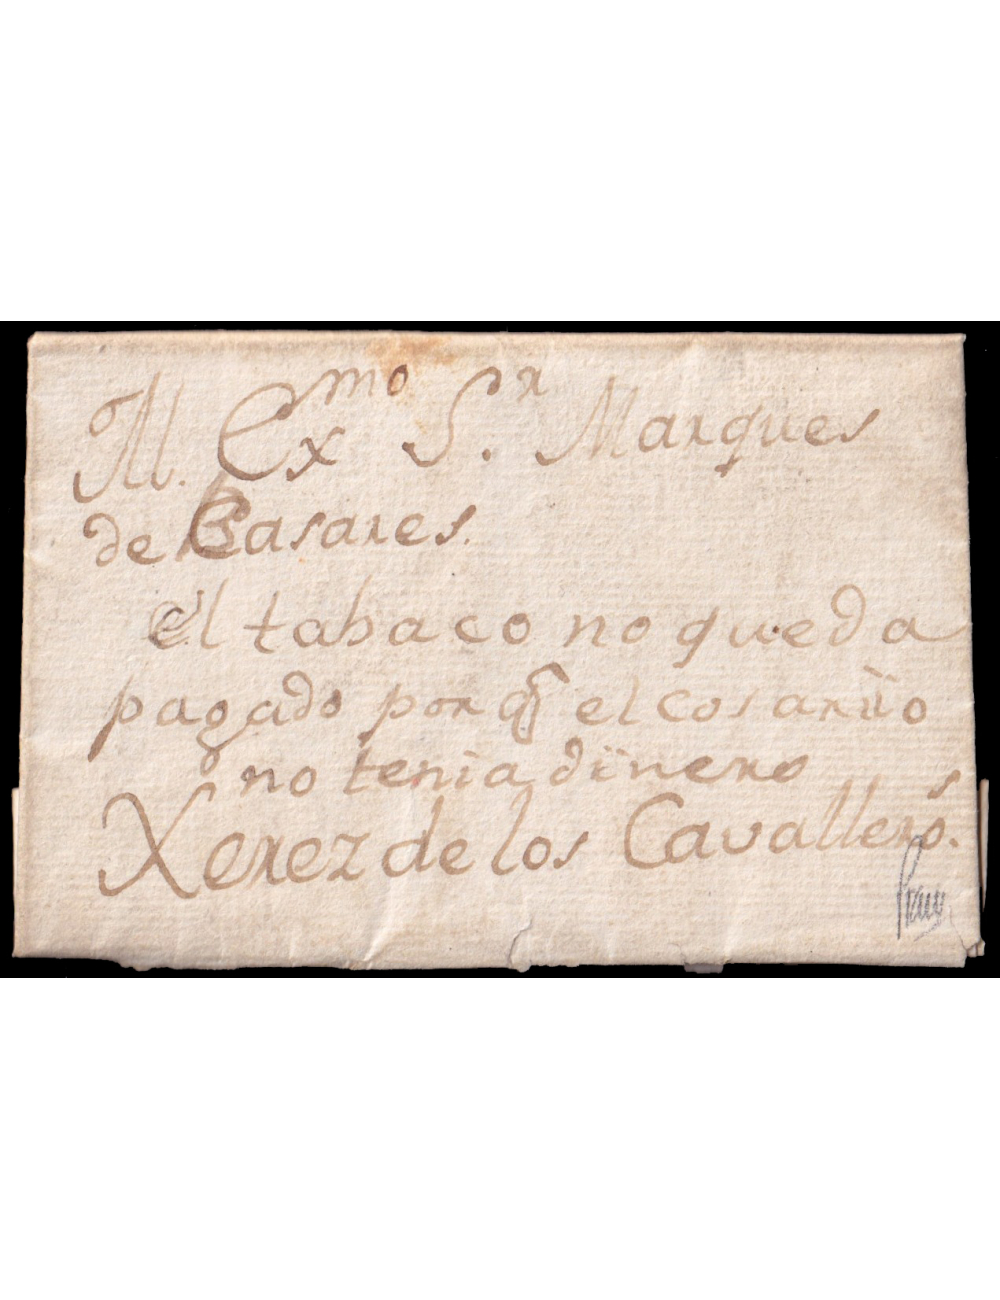 M. Exmo Sr. Marques
de Casares.
el tabaco no queda
pagado porq el cosario
no tenia dinero
Xerez de los Cavalleros.